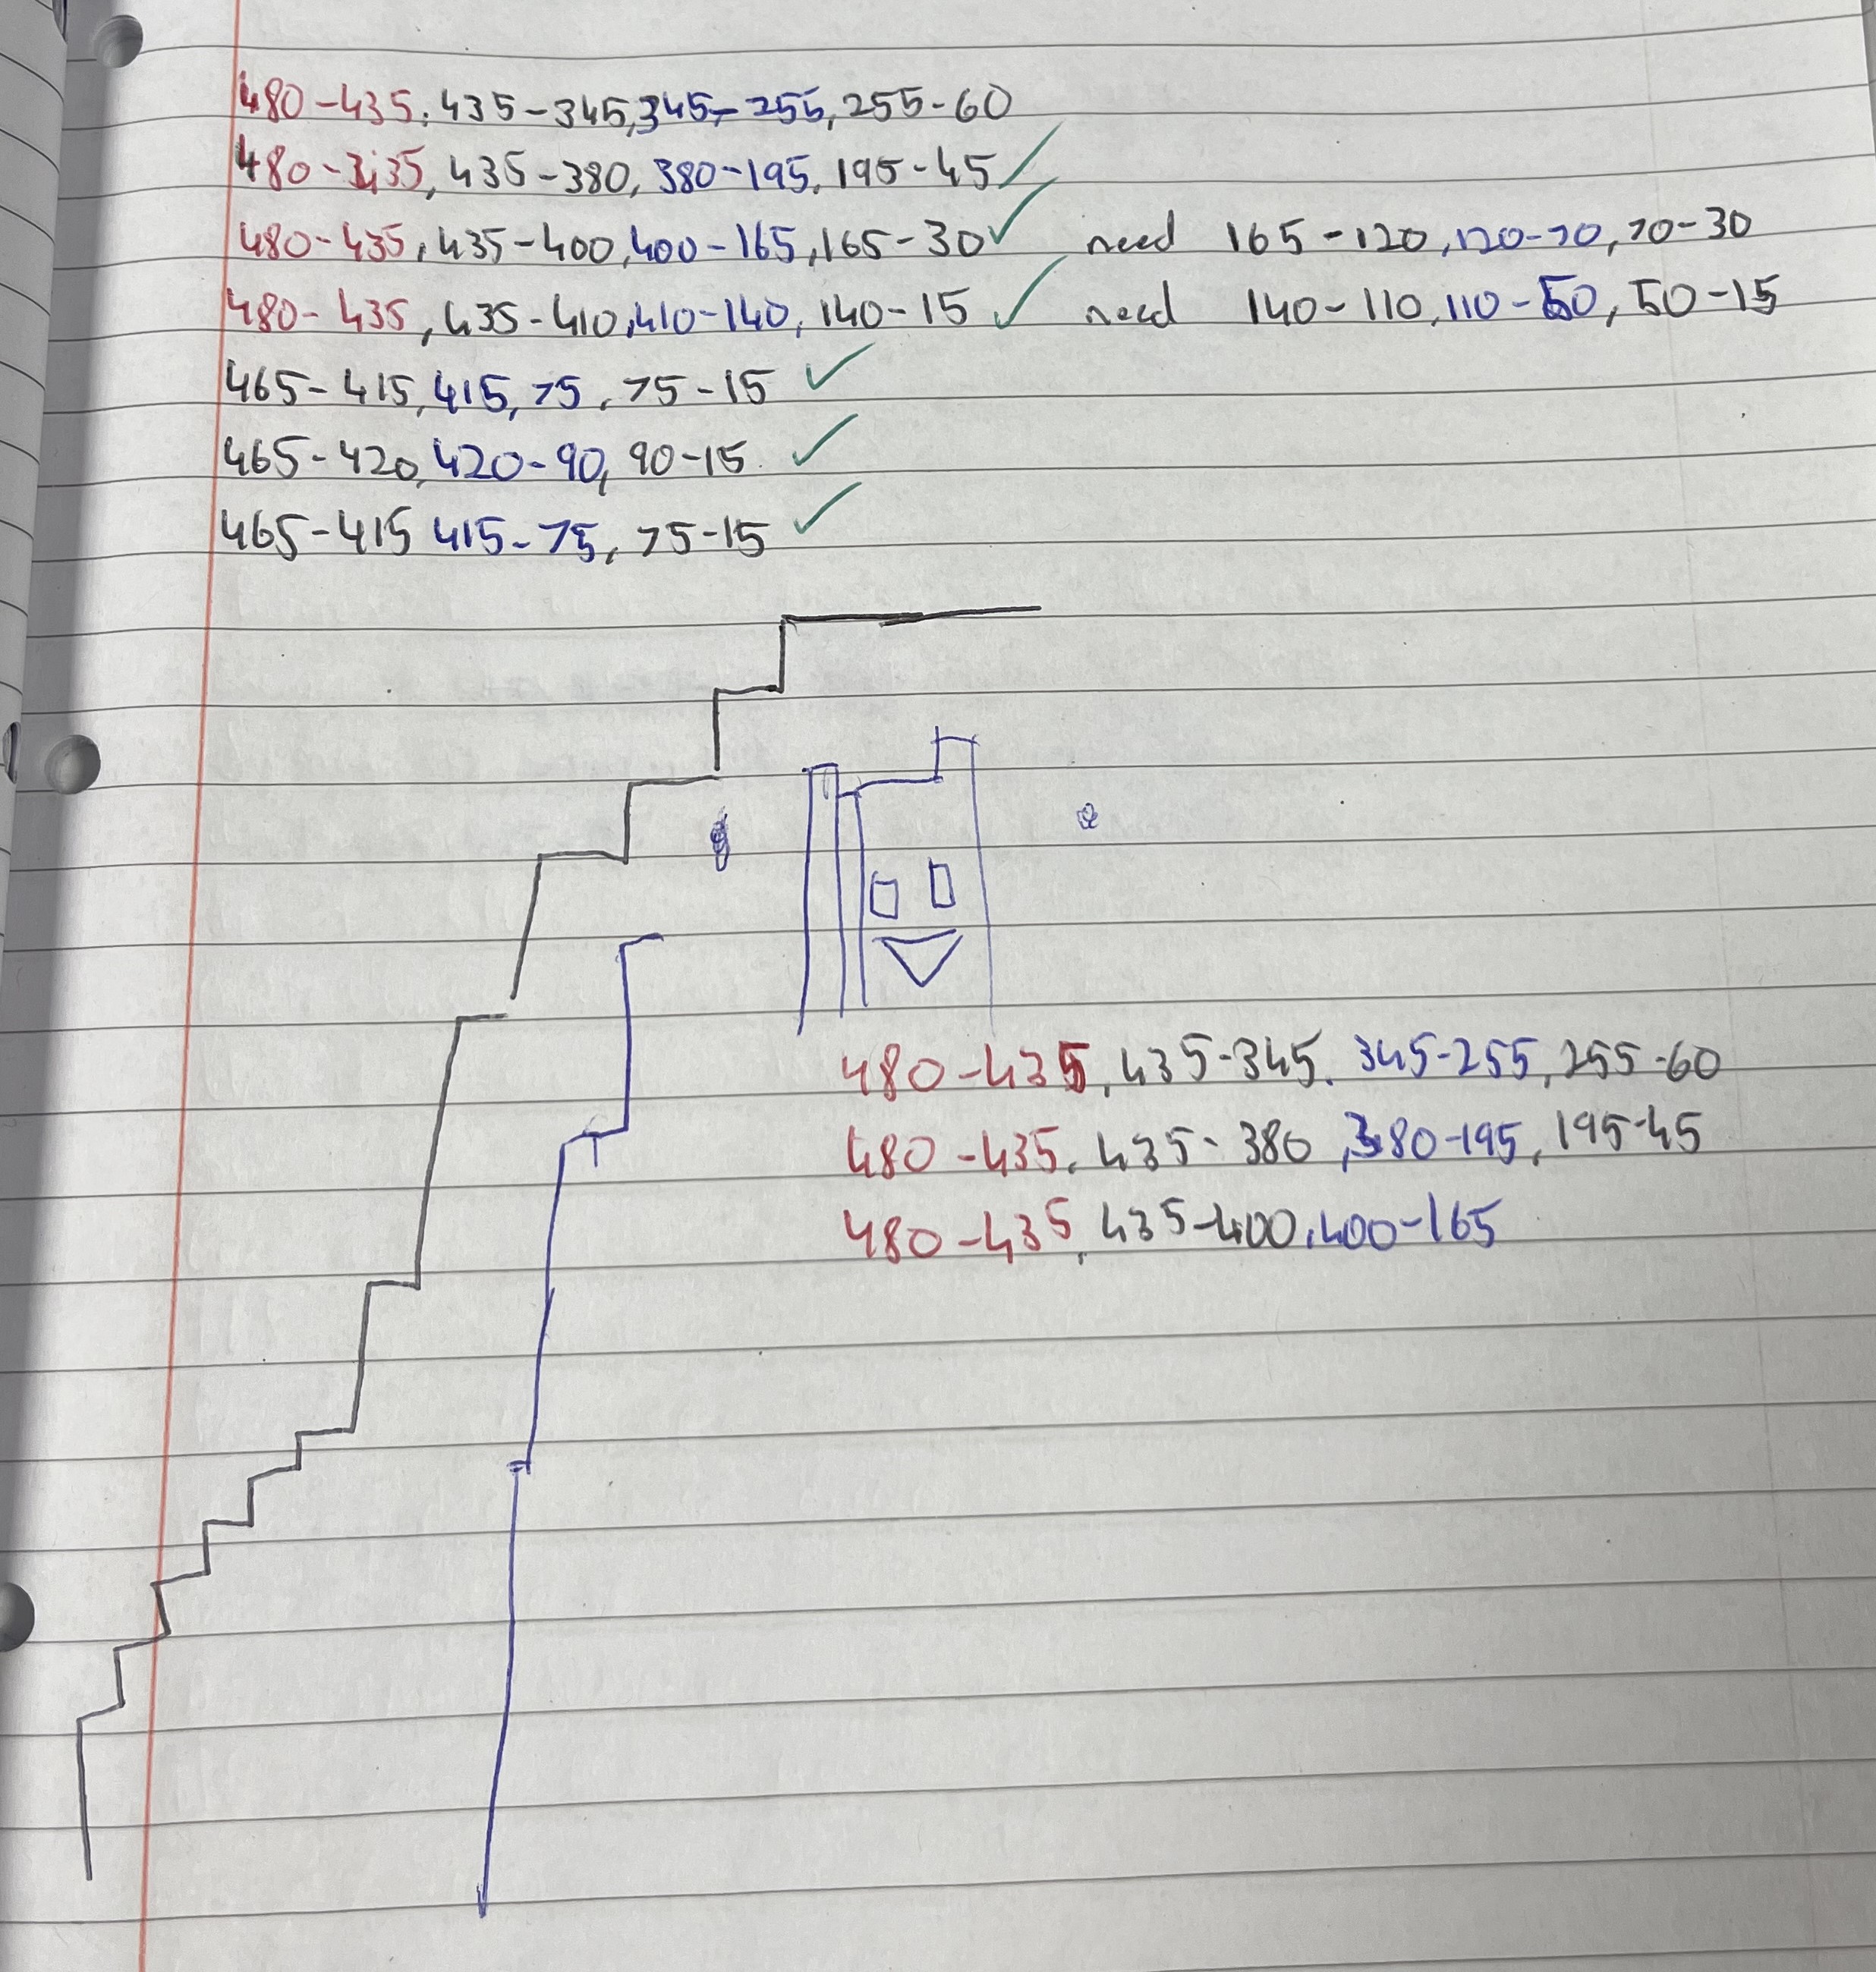 480-435, 435-345, 345-255, 255-60
480-435, 435-380, 380-195, 195-45 ✓
480-435, 435-400, 400-165, 165-30 ✓ need 165-120, 120-70, 70-30
480-435, 435-410, 410-140, 140-15 ✓ need 140-110, 110-50, 50-15
465-415, 415, 75, 75-15 ✓
465-420, 420-90, 90-15 ✓
465-415 415-75, 75-15 ✓
480-435, 435-345. 345-255, 255-60
480-435, 435-380, 380-195, 195-45
480-435, 435-400, 400-165